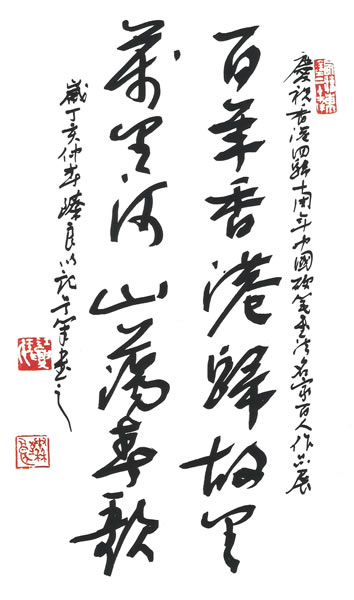 慶祝香港回歸十周年中國硬筆書法名家百人作品展
百年香港歸故里
萬里河山蕩春歌
歲丁亥仲春良以記号筆書之